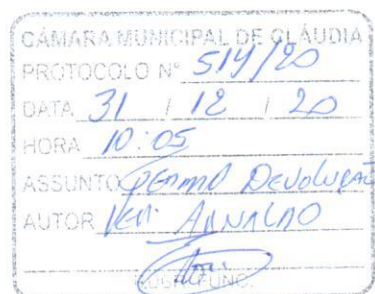 CÂMARA MUNICIPAL DE CLÁUDIA
PROTOCOLO Nº 514/20
DATA 31 / 12 / 20
HORA 10:05
ASSUNTO Devolução
AUTOR Ver. Arnaldo